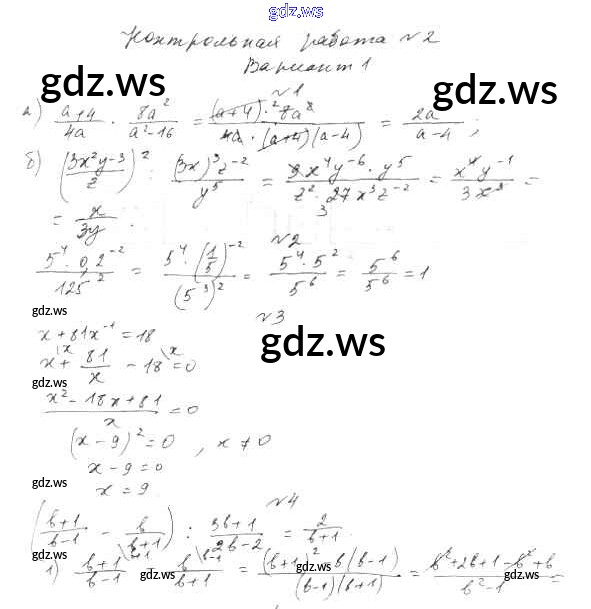 gdz.ws
Контрольная работа №2
gdz.ws gdz.ws
Вариант 1
№1
а) (a+4)/(4a) · (8a²)/(a²-16) = ((a+4)·8a²)/(4a·(a+4)(a-4)) = 2a/(a-4);
б) (3x²y-3/z)² : ((3x)³z⁻²)/y⁵ = (9x⁴y⁻⁶·y⁵)/(z²·27x³z⁻²) = (x⁴y⁻¹)/(3x³) =
= x/(3y).
№2
(5⁴·0,2⁻²)/125² = (5⁴·(1/5)⁻²)/(5³)² = (5⁴·5²)/5⁶ = 5⁶/5⁶ = 1
gdz.ws
№3
gdz.ws
x+81x⁻¹=18
x+81/x-18=0
gdz.ws
(x²-18x+81)/x=0
(x-9)²=0, x≠0
x-9=0
gdz.ws
x=9.
№4
((b+1)/(b-1) - b/(b+1)) : (3b+1)/(2b-2) = 2/(b+1)
gdz.ws
1) (b+1)/(b-1) - b/(b+1) = ((b+1)² b(b-1))/((b-1)(b+1)) = (b²+2b+1-b²+b)/(b²-1) =
gdz.ws gdz.ws gdz.ws